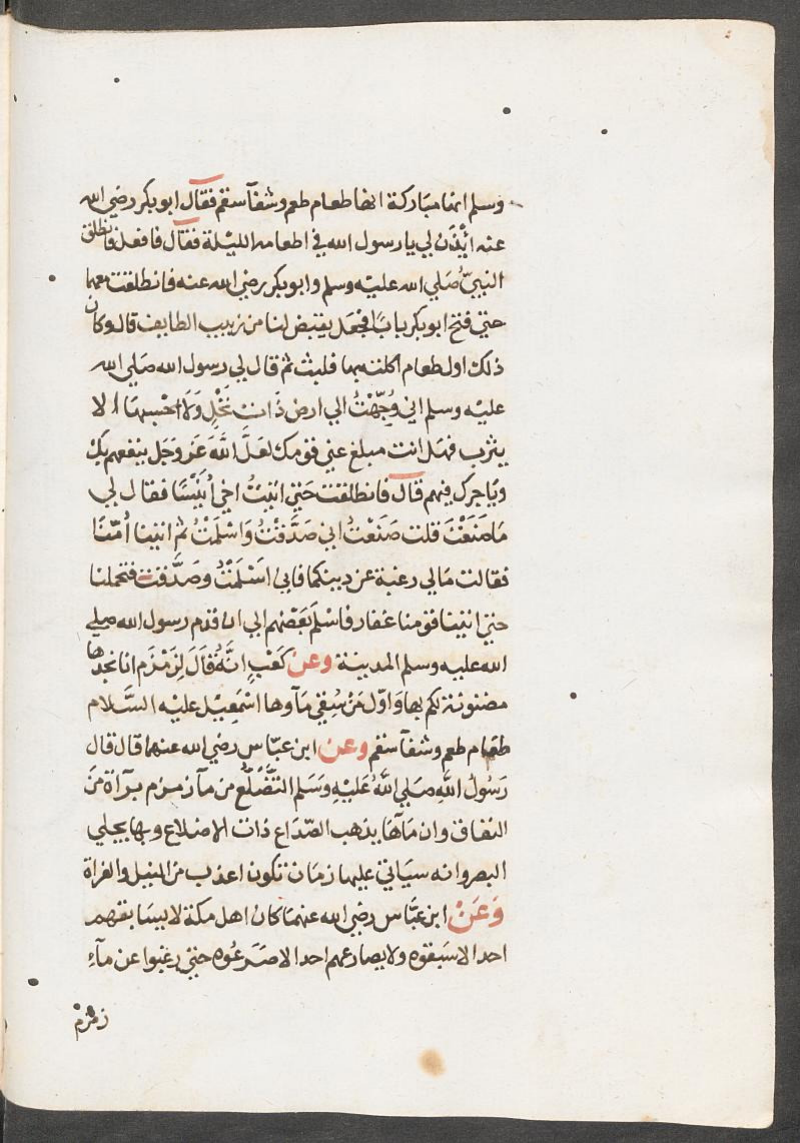 وسلم انها مباركة انها طعام طعم وشفآ سقم فقال ابو بكر رضي الله
عنه ائذن لي يا رسول الله في اطعامه الليلة فقال فافعل فانطلق
النبيّ صَلي الله عليه وسلم وابو بكر رضي الله عنه فانطلقت معهما
حتي فتح ابو بكر بابًا فجعل يقبض لنا من زبيب الطايف قال وكان
ذلك اول طعام اكلته بها فلبثت ثم قال لي رسول الله صَلي الله
عليه وسلم اني وُجِّهْتُ الي ارض ذَاتِ نَخْلٍ وَلَا احْسِبهَا الا
يثرب فهَل انت مبلغ عني قومك لعَلَّ اللَّهَ عَز وَجَل ينفعهم بِكَ
ويَاجرك فيهم قال فانطلقت حَتي اتيْتُ اخي أُنَيْسًا فقال لي
مَا صَنَعْتَ قلت صَنَعْتُ اني صَدَّقْتُ وَاسْلَمْتُ ثم اتينا أُمَّنَا
فقالت مَا لي رغبة عن دينكما فاني اسْلَمْتُ وصَدَّقت فتحملنا
حتي اتينا قومنا غفار فاسْلَم بَعْضهم الي ان قدم رسول الله صلي
الله عليه وسلم المدينة وعن كَعْبٍ انَّهُ قَالَ لِزَمْزَم انا نجدها
مضنونة لكم بها وَاوّل مَنْ سُقِيَ مَآوها اسْمَعِيْل عليه السَّلام
طعَام طعم وشفآ سقم وعن ابن عبّاس رضي الله عنهما قال قال
رَسُولُ اللَّهِ صَلي اللَّهُ عَلَيْهِ وَسَلم التَّضَلُّع من مآ زمزم برآة مَنَ
النفاق وان مَآهَا يذهب الصّدَاع ذات الاضلاع وبها يجلي
البصر وانه سيَاتي عليها زمَان تكون اعذب من النيل والفراة
وَعَنْ ابن عبَّاس رضي الله عنهمَا كان اهل مكة لا يسَابقهم
احدا الا سَبقوه ولا يصارعهم احدا الا صَرَعُوه حتي رغبوا عن مآءِ
زمزم